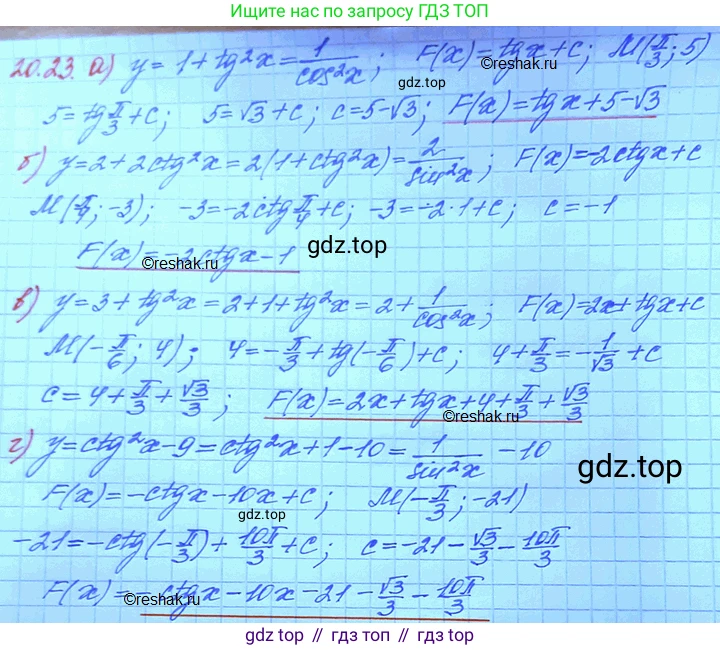 Ищите нас по запросу ГДЗ ТОП
20.23. а) y = 1 + tg²x = 1/cos²x; F(x) = tgx + C; M(π/3; 5)
gdz.top
5 = tg π/3 + C; 5 = √3 + C; C = 5 - √3; F(x) = tgx + 5 - √3
©reshak.ru
б) y = 2 + 2ctg²x = 2(1 + ctg²x) = 2/sin²x; F(x) = -2ctgx + C
M(π/4; -3); -3 = -2ctg π/4 + C; -3 = -2·1 + C; C = -1
F(x) = -2ctgx - 1
©reshak.ru
gdz.top
в) y = 3 + tg²x = 2 + 1 + tg²x = 2 + 1/cos²x; F(x) = 2x + tgx + C
M(-π/6; 4); 4 = -π/3 + tg(-π/6) + C; 4 + π/3 = -1/√3 + C
C = 4 + π/3 + √3/3; F(x) = 2x + tgx + 4 + π/3 + √3/3
©reshak.ru
г) y = ctg²x - 9 = ctg²x + 1 - 10 = 1/sin²x - 10
gdz.top
F(x) = -ctgx - 10x + C; M(-π/3; -21)
gdz.top
-21 = -ctg(-π/3) + 10π/3 + C; C = -21 - √3/3 - 10π/3
F(x) = -ctgx - 10x - 21 - √3/3 - 10π/3
©reshak.ru
gdz.top // гдз.топ // gdz.top